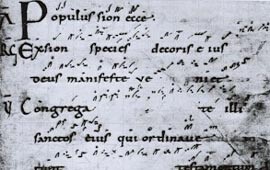 Populus sion ecce
Ex sion species decoris eius
deus manifeste ve niet
Congrega te illi
sanctos eius qui ordinave